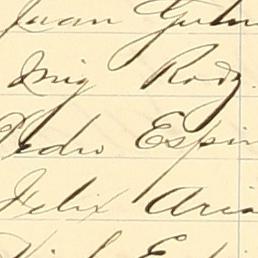 Juan Gutie
Mig Rodz.
Pedro Espin
Felix Aria